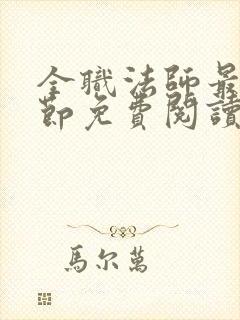 全職法師最
節免費閱讀
馬尔萬